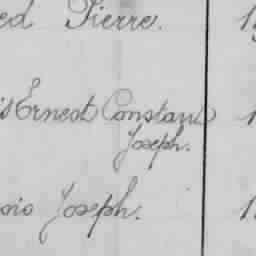 ed Pierre.
is Ernest Constant
Joseph.
ois Joseph.